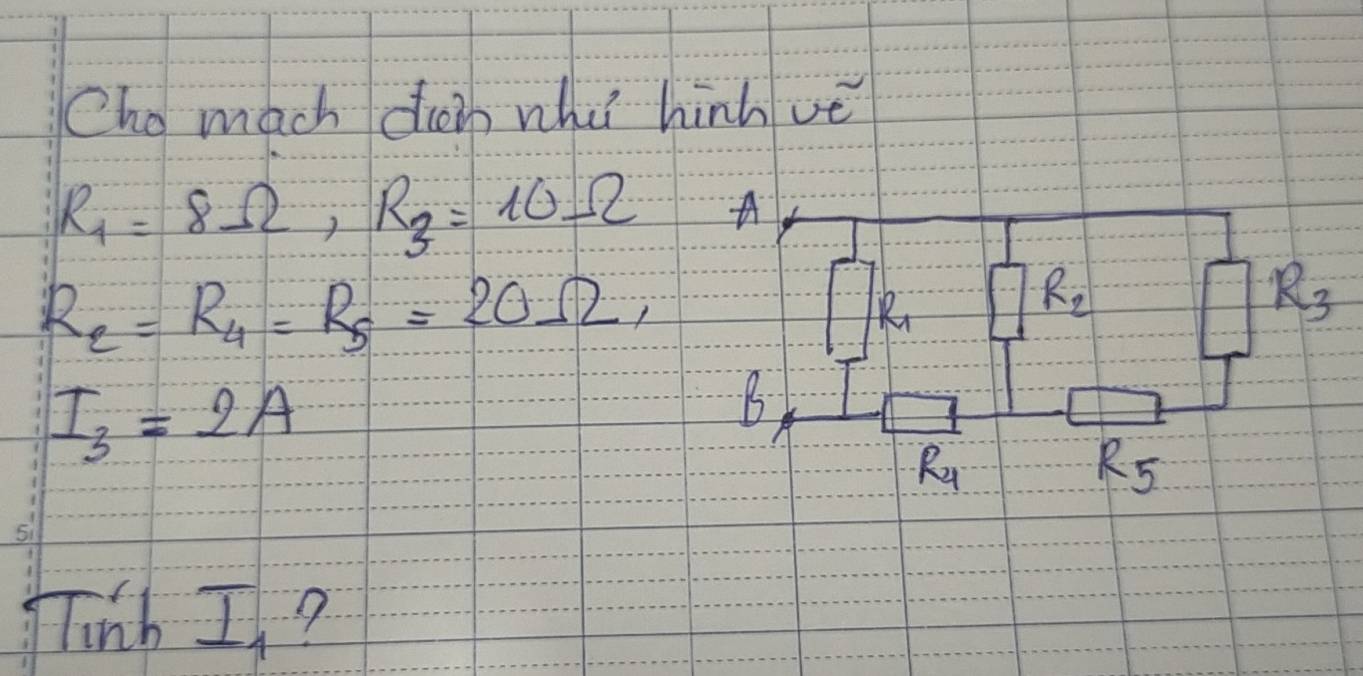 Cho mạch điện như hình vẽ
R₁ = 8Ω, R₃ = 10Ω
R₂ = R₄ = R₅ = 20Ω,
I₃ = 2A
A
R₁
R₂
R₃
B
R₄
R₅
5
Tính I₁?